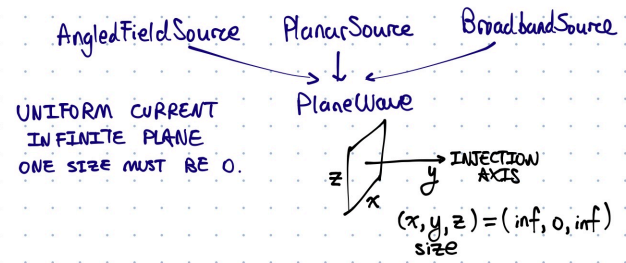 AngledFieldSource PlanarSource BroadbandSource
PlaneWave
UNIFORM CURRENT
INFINITE PLANE
ONE SIZE MUST BE 0.
z
x
y
INJECTION
AXIS
(x,y,z)=(inf,0,inf)
size